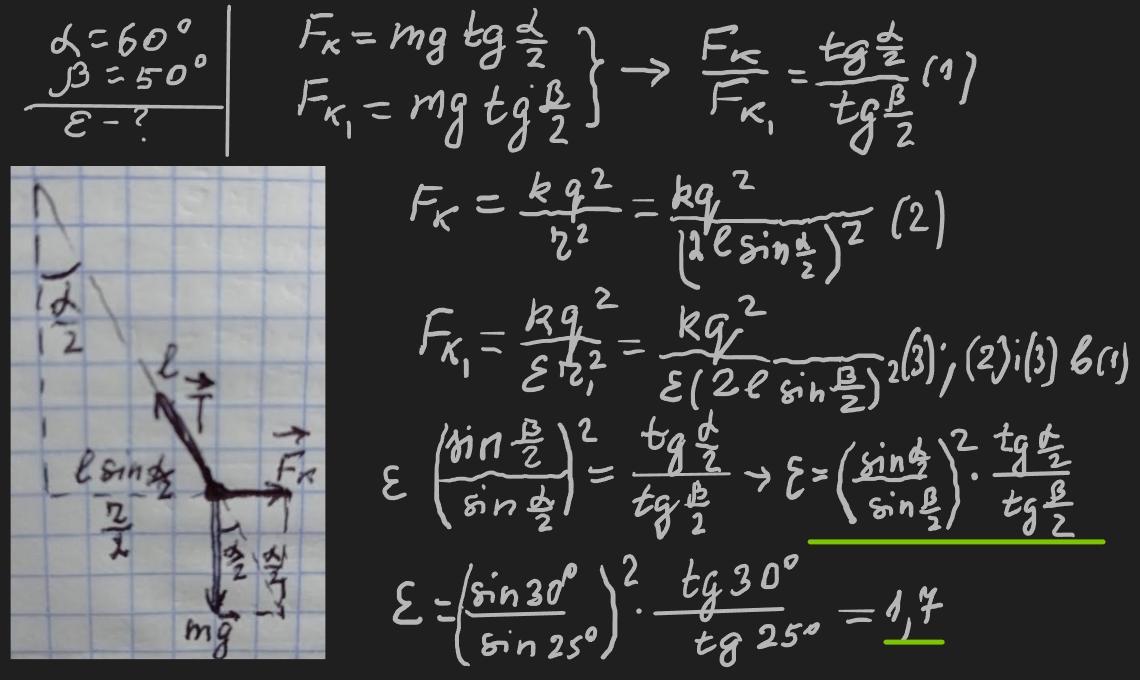 α = 60°
β = 50°
ε - ?
Fк = mg tg α/2
Fк₁ = mg tg β/2
} → Fк/Fк₁ = tg α/2 / tg β/2 (1)
Fк = kq²/r² = kq²/(2l sin α/2)² (2)
Fк₁ = kq²/εr₁² = kq²/ε(2l sin β/2)² (3); (2) і (3) в (1)
ε (sin β/2 / sin α/2)² = tg α/2 / tg β/2 → ε = (sin α/2 / sin β/2)² · tg α/2 / tg β/2
ε = (sin 30° / sin 25°)² · tg 30° / tg 25° = 1,7
α/2
l
T
l sin α/2
Fк
r/2
α/2
α/2
mg